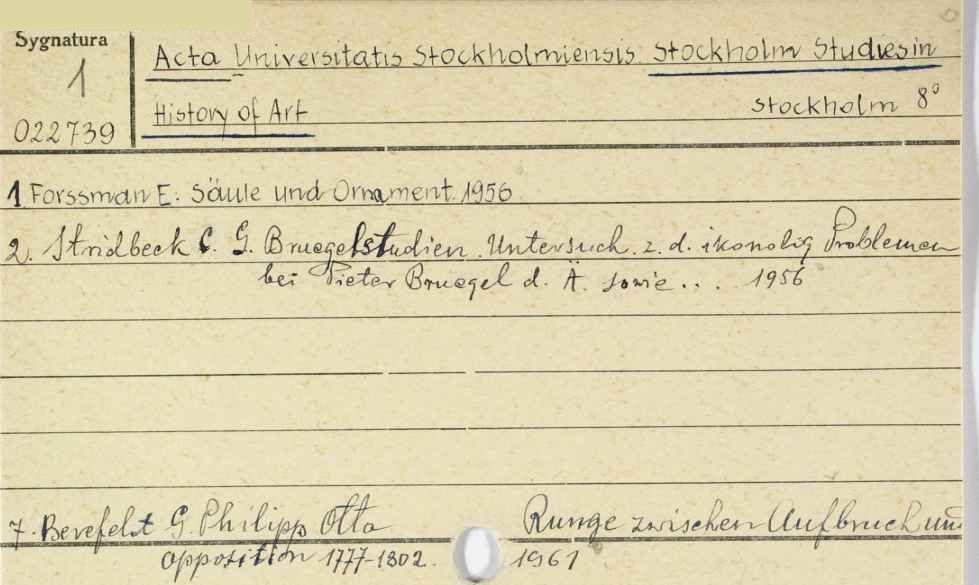 Sygnatura
1
022739
Acta Universitatis Stockholmiensis. Stockholm Studies in
History of Art
Stockholm 8°
1. Forssman E. Säule und Ornament. 1956
2. Stridbeck C. G. Bruegelstudien. Untersuch. z. d. ikonolig Problemen
bei Pieter Bruegel d. Ä. sowie... 1956
7. Berefelt G. Philipp Otto Runge zwischen Aufbruch und
Opposition 1777-1802. 1961